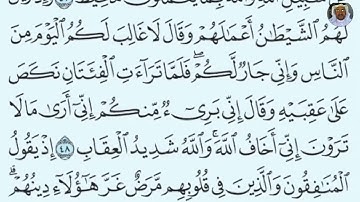 لَهُمُ ٱلشَّيْطَٰنُ أَعْمَٰلَهُمْ وَقَالَ لَا غَالِبَ لَكُمُ ٱلْيَوْمَ مِنَ
ٱلنَّاسِ وَإِنِّى جَارٌ لَّكُمْ ۖ فَلَمَّا تَرَآءَتِ ٱلْفِئَتَانِ نَكَصَ
عَلَىٰ عَقِبَيْهِ وَقَالَ إِنِّى بَرِىٓءٌ مِّنكُمْ إِنِّىٓ أَرَىٰ مَا لَا
تَرَوْنَ إِنِّىٓ أَخَافُ ٱللَّهَ ۚ وَٱللَّهُ شَدِيدُ ٱلْعِقَابِ ٤٨ إِذْ يَقُولُ
ٱلْمُنَٰفِقُونَ وَٱلَّذِينَ فِى قُلُوبِهِم مَّرَضٌ غَرَّ هَٰٓؤُلَآءِ دِينُهُمْ ۗ